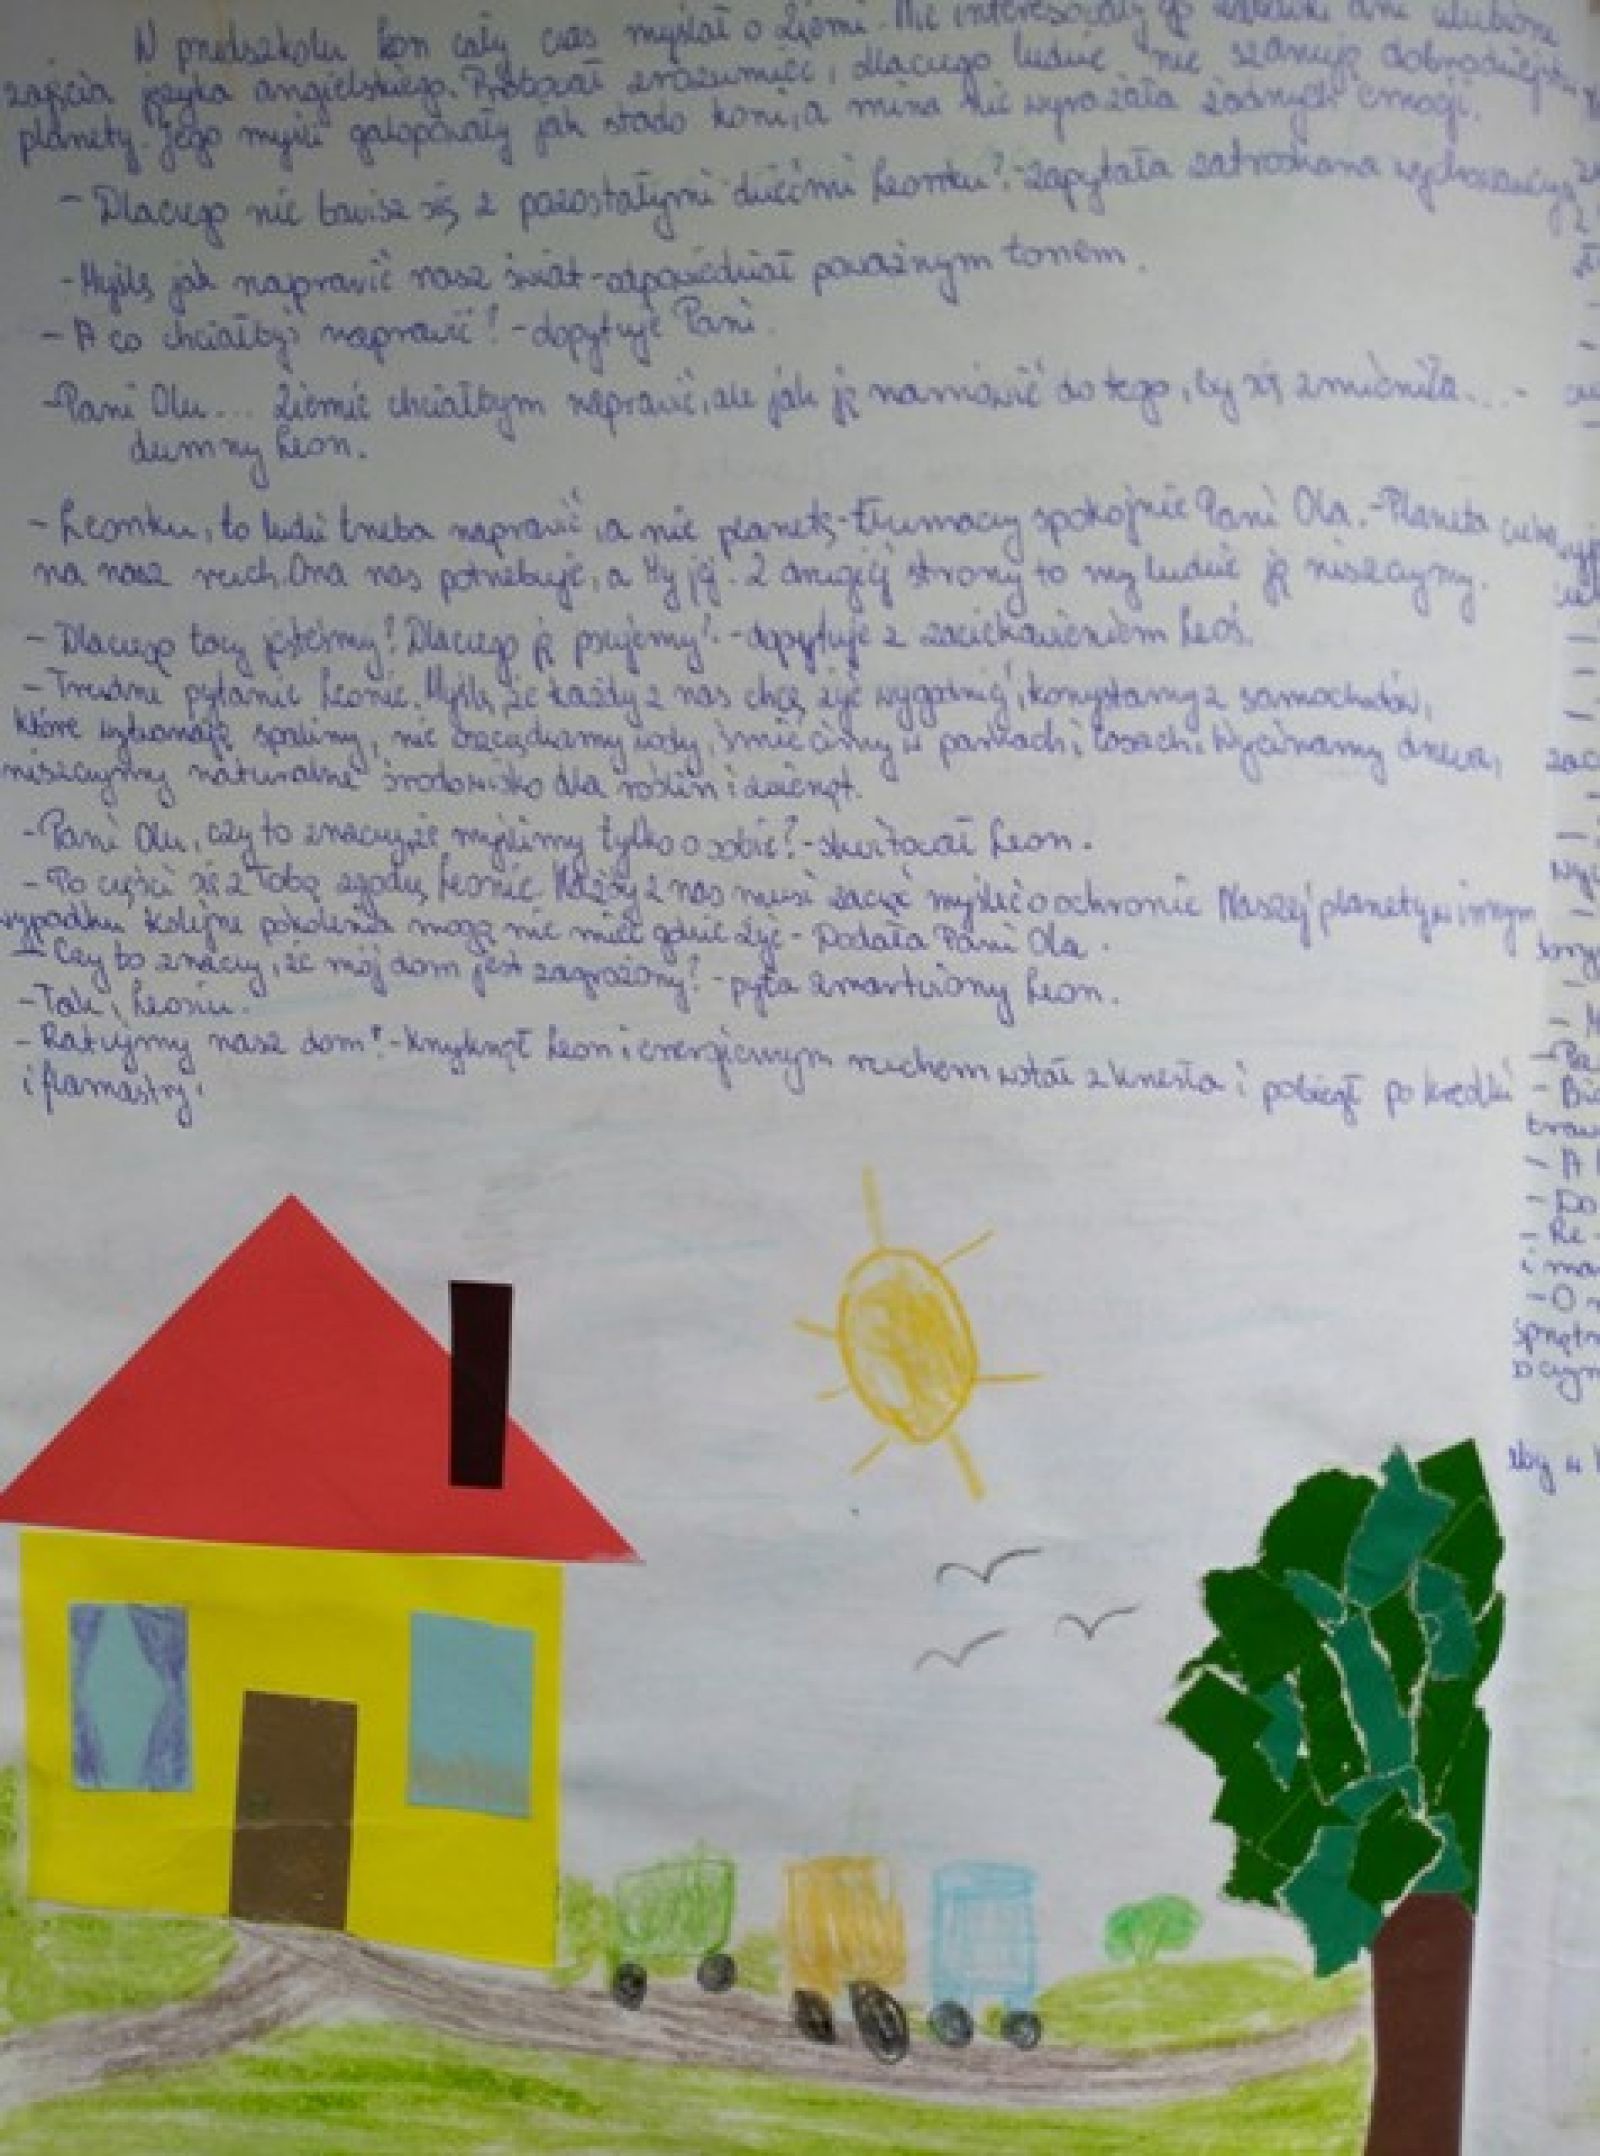 W przedszkolu Leon cały czas myślał o Ziemi. Nie interesowały go zabawki ani ulubione
zajęcia języka angielskiego. Próbował zrozumieć, dlaczego ludzie nie szanują dobrodziejstw
planety. Jego myśli galopowały jak stado koni, a mina nie wyrażała żadnych emocji.
- Dlaczego nie bawisz się z pozostałymi dziećmi Leonku? - zapytała zatroskana wychowawczyni
- Myślę jak naprawić nasz świat - odpowiedział poważnym tonem.
- A co chciałbyś naprawić? - dopytuje Pani.
- Pani Olu... Ziemię chciałbym naprawić, ale jak ją namówić do tego, by się zmieniła... -
dumny Leon.
- Leonku, to ludzi trzeba naprawić, a nie planetę - tłumaczy spokojnie Pani Ola. - Planeta czeka
na nasz ruch. Ona nas potrzebuje, a My jej. Z drugiej strony to my ludzie ją niszczymy.
- Dlaczego tacy jesteśmy? Dlaczego ją psujemy? - dopytuje z zaciekawieniem Leoś.
- Trudne pytanie Leonie. Myślę, że każdy z nas chce żyć wygodniej, korzystamy z samochodów,
które wytwarzają spaliny, nie oszczędzamy wody, śmiecimy w parkach i lasach. Wycinamy drzewa,
niszczymy naturalne środowisko dla roślin i zwierząt.
- Pani Olu, czy to znaczy, że myślimy tylko o sobie? - skwitował Leon.
- Po części się z Tobą zgodzę Leonie. Każdy z nas musi zacząć myśleć o ochronie Naszej planety w innym
wypadku kolejne pokolenia mogą nie mieć gdzie żyć - Dodała Pani Ola.
- Czy to znaczy, że mój dom jest zagrożony? - pyta zmartwiony Leon.
- Tak, Leosiu.
- Ratujmy nasz dom! - krzyknął Leon i energicznym ruchem wstał z krzesła i pobiegł po kredki
i flamastry.